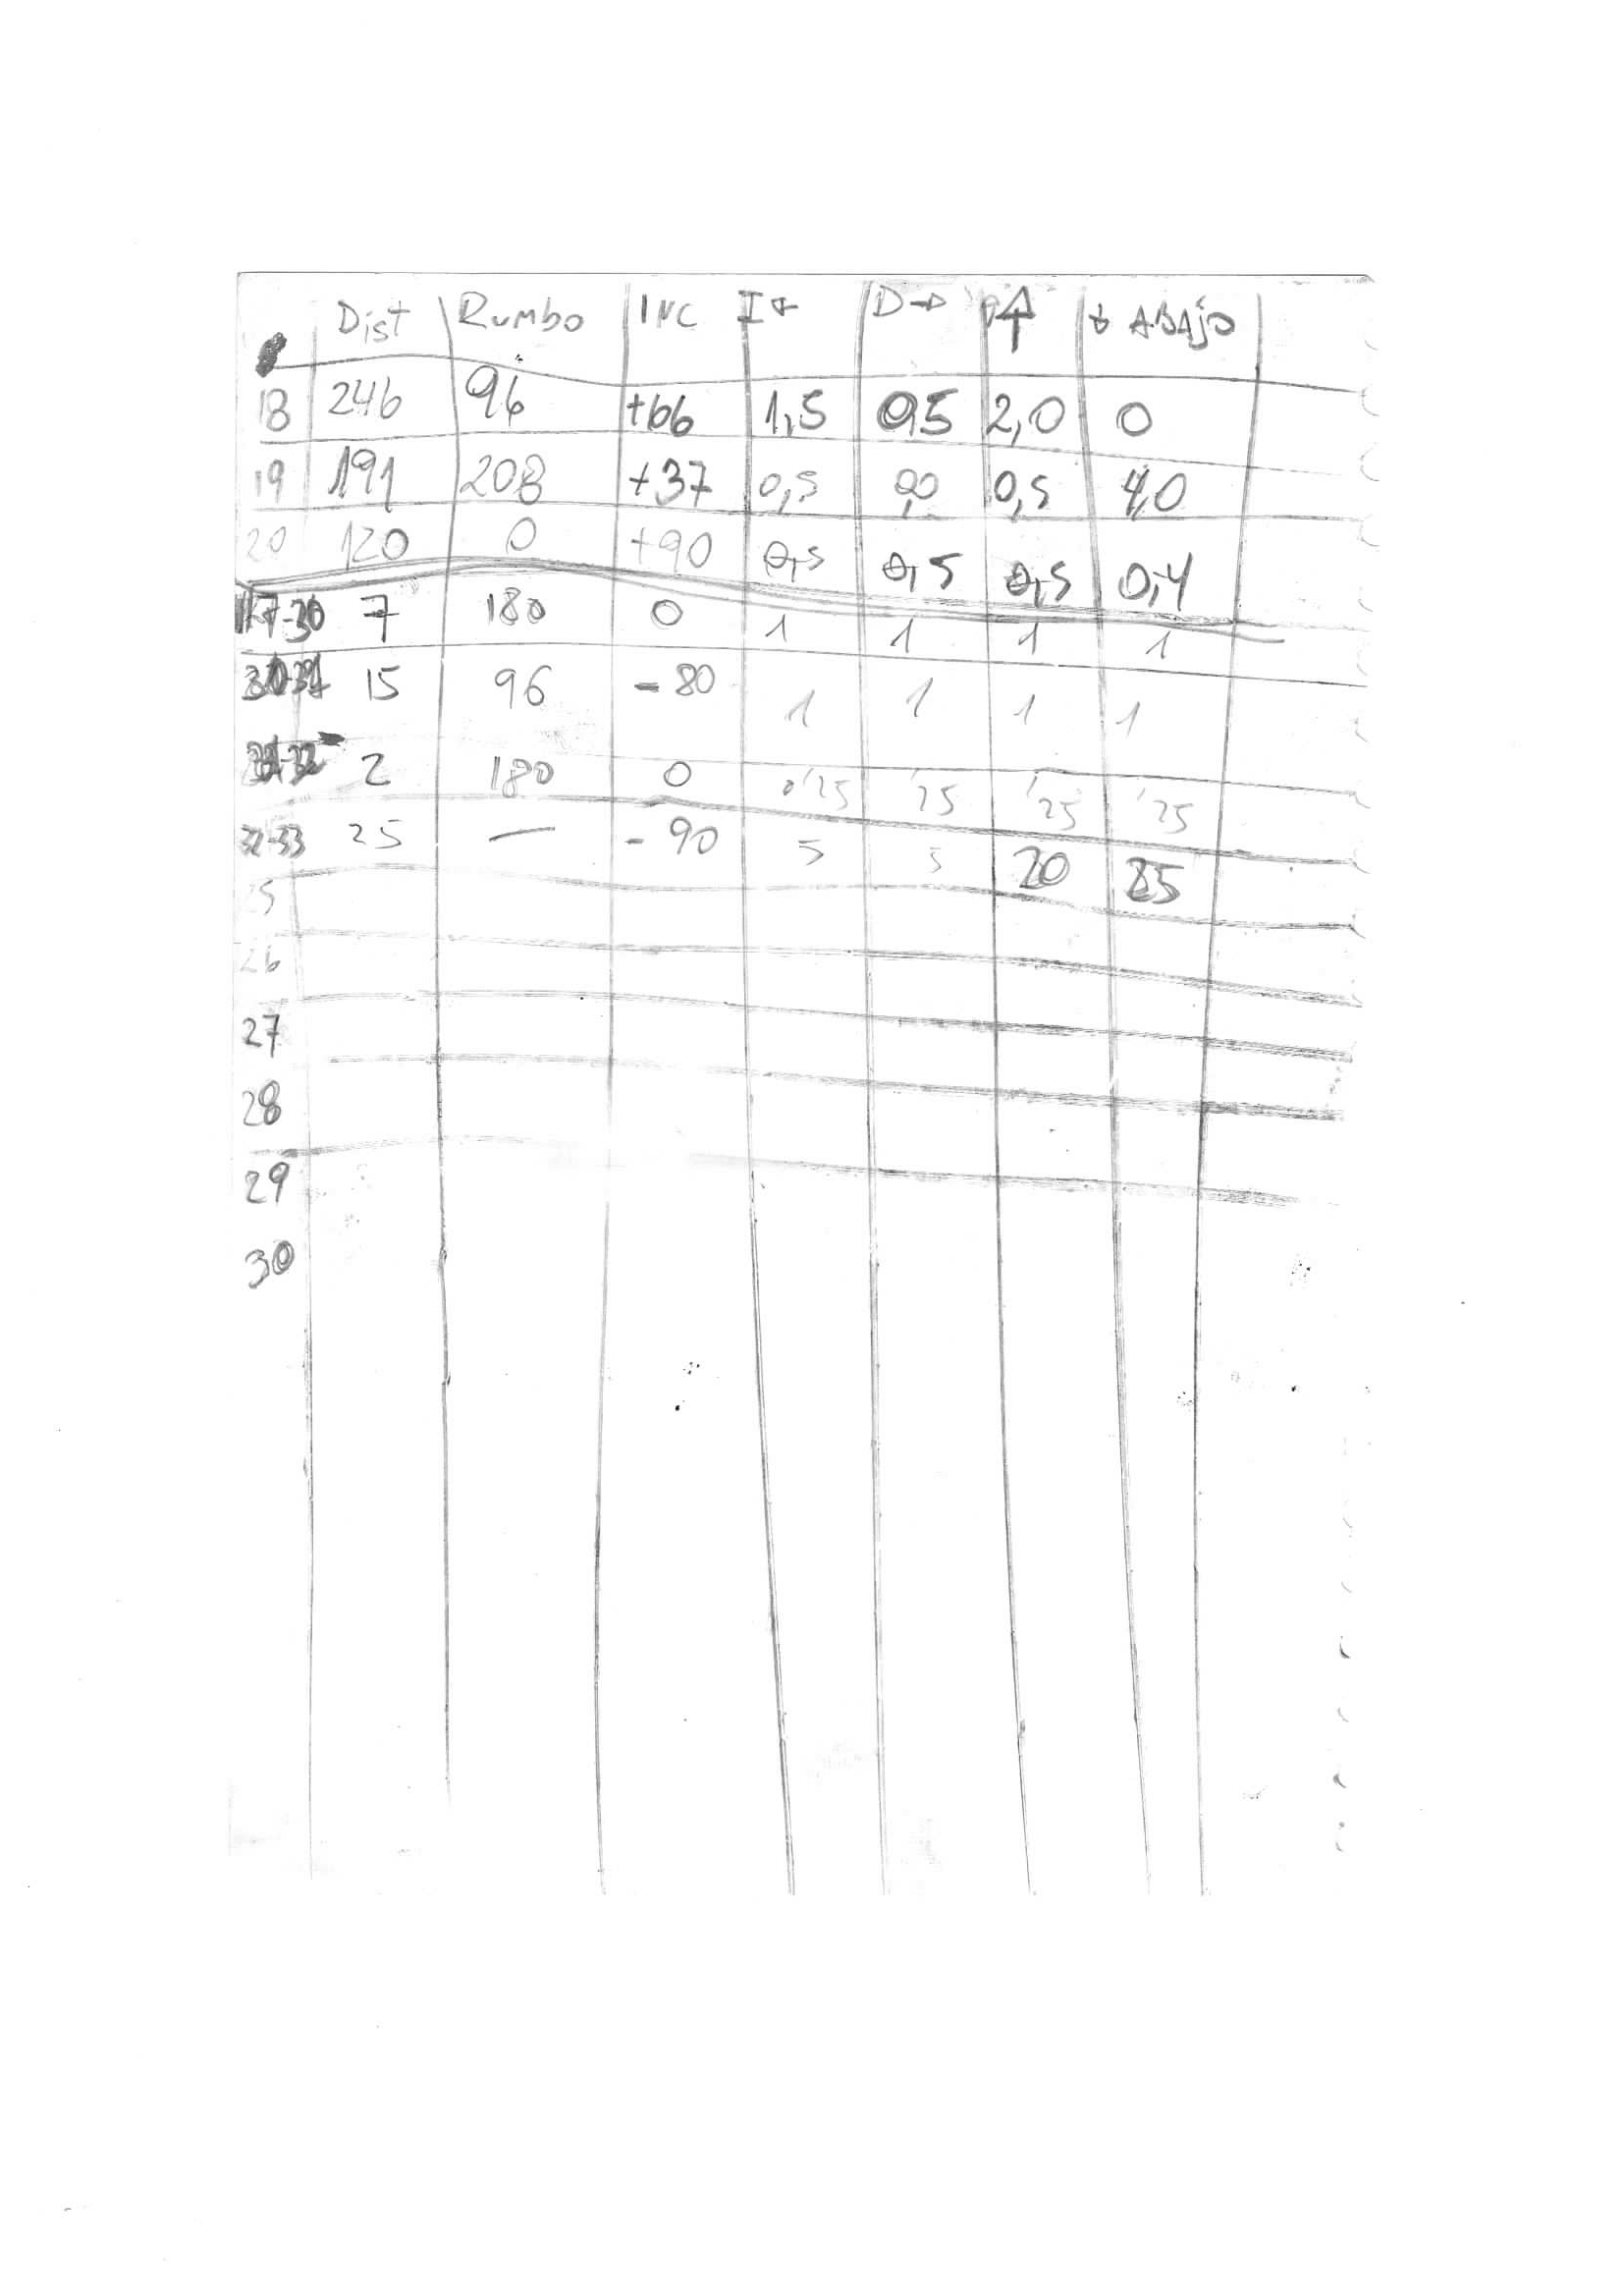 Dist Rumbo INC I← D→ ↑ ↓ ABAJO
18 246 96 +66 1,5 0,5 2,0 0
19 191 208 +37 0,5 0,0 0,5 4,0
20 120 0 +90 0,5 0,5 0,5 0,4
17-30 7 180 0 1 1 1 1
30-31 15 96 -80 1 1 1 1
31-32 2 180 0 0'25 '25 '25 '25
32-33 25 — -90 5 5 20 25
25
26
27
28
29
30